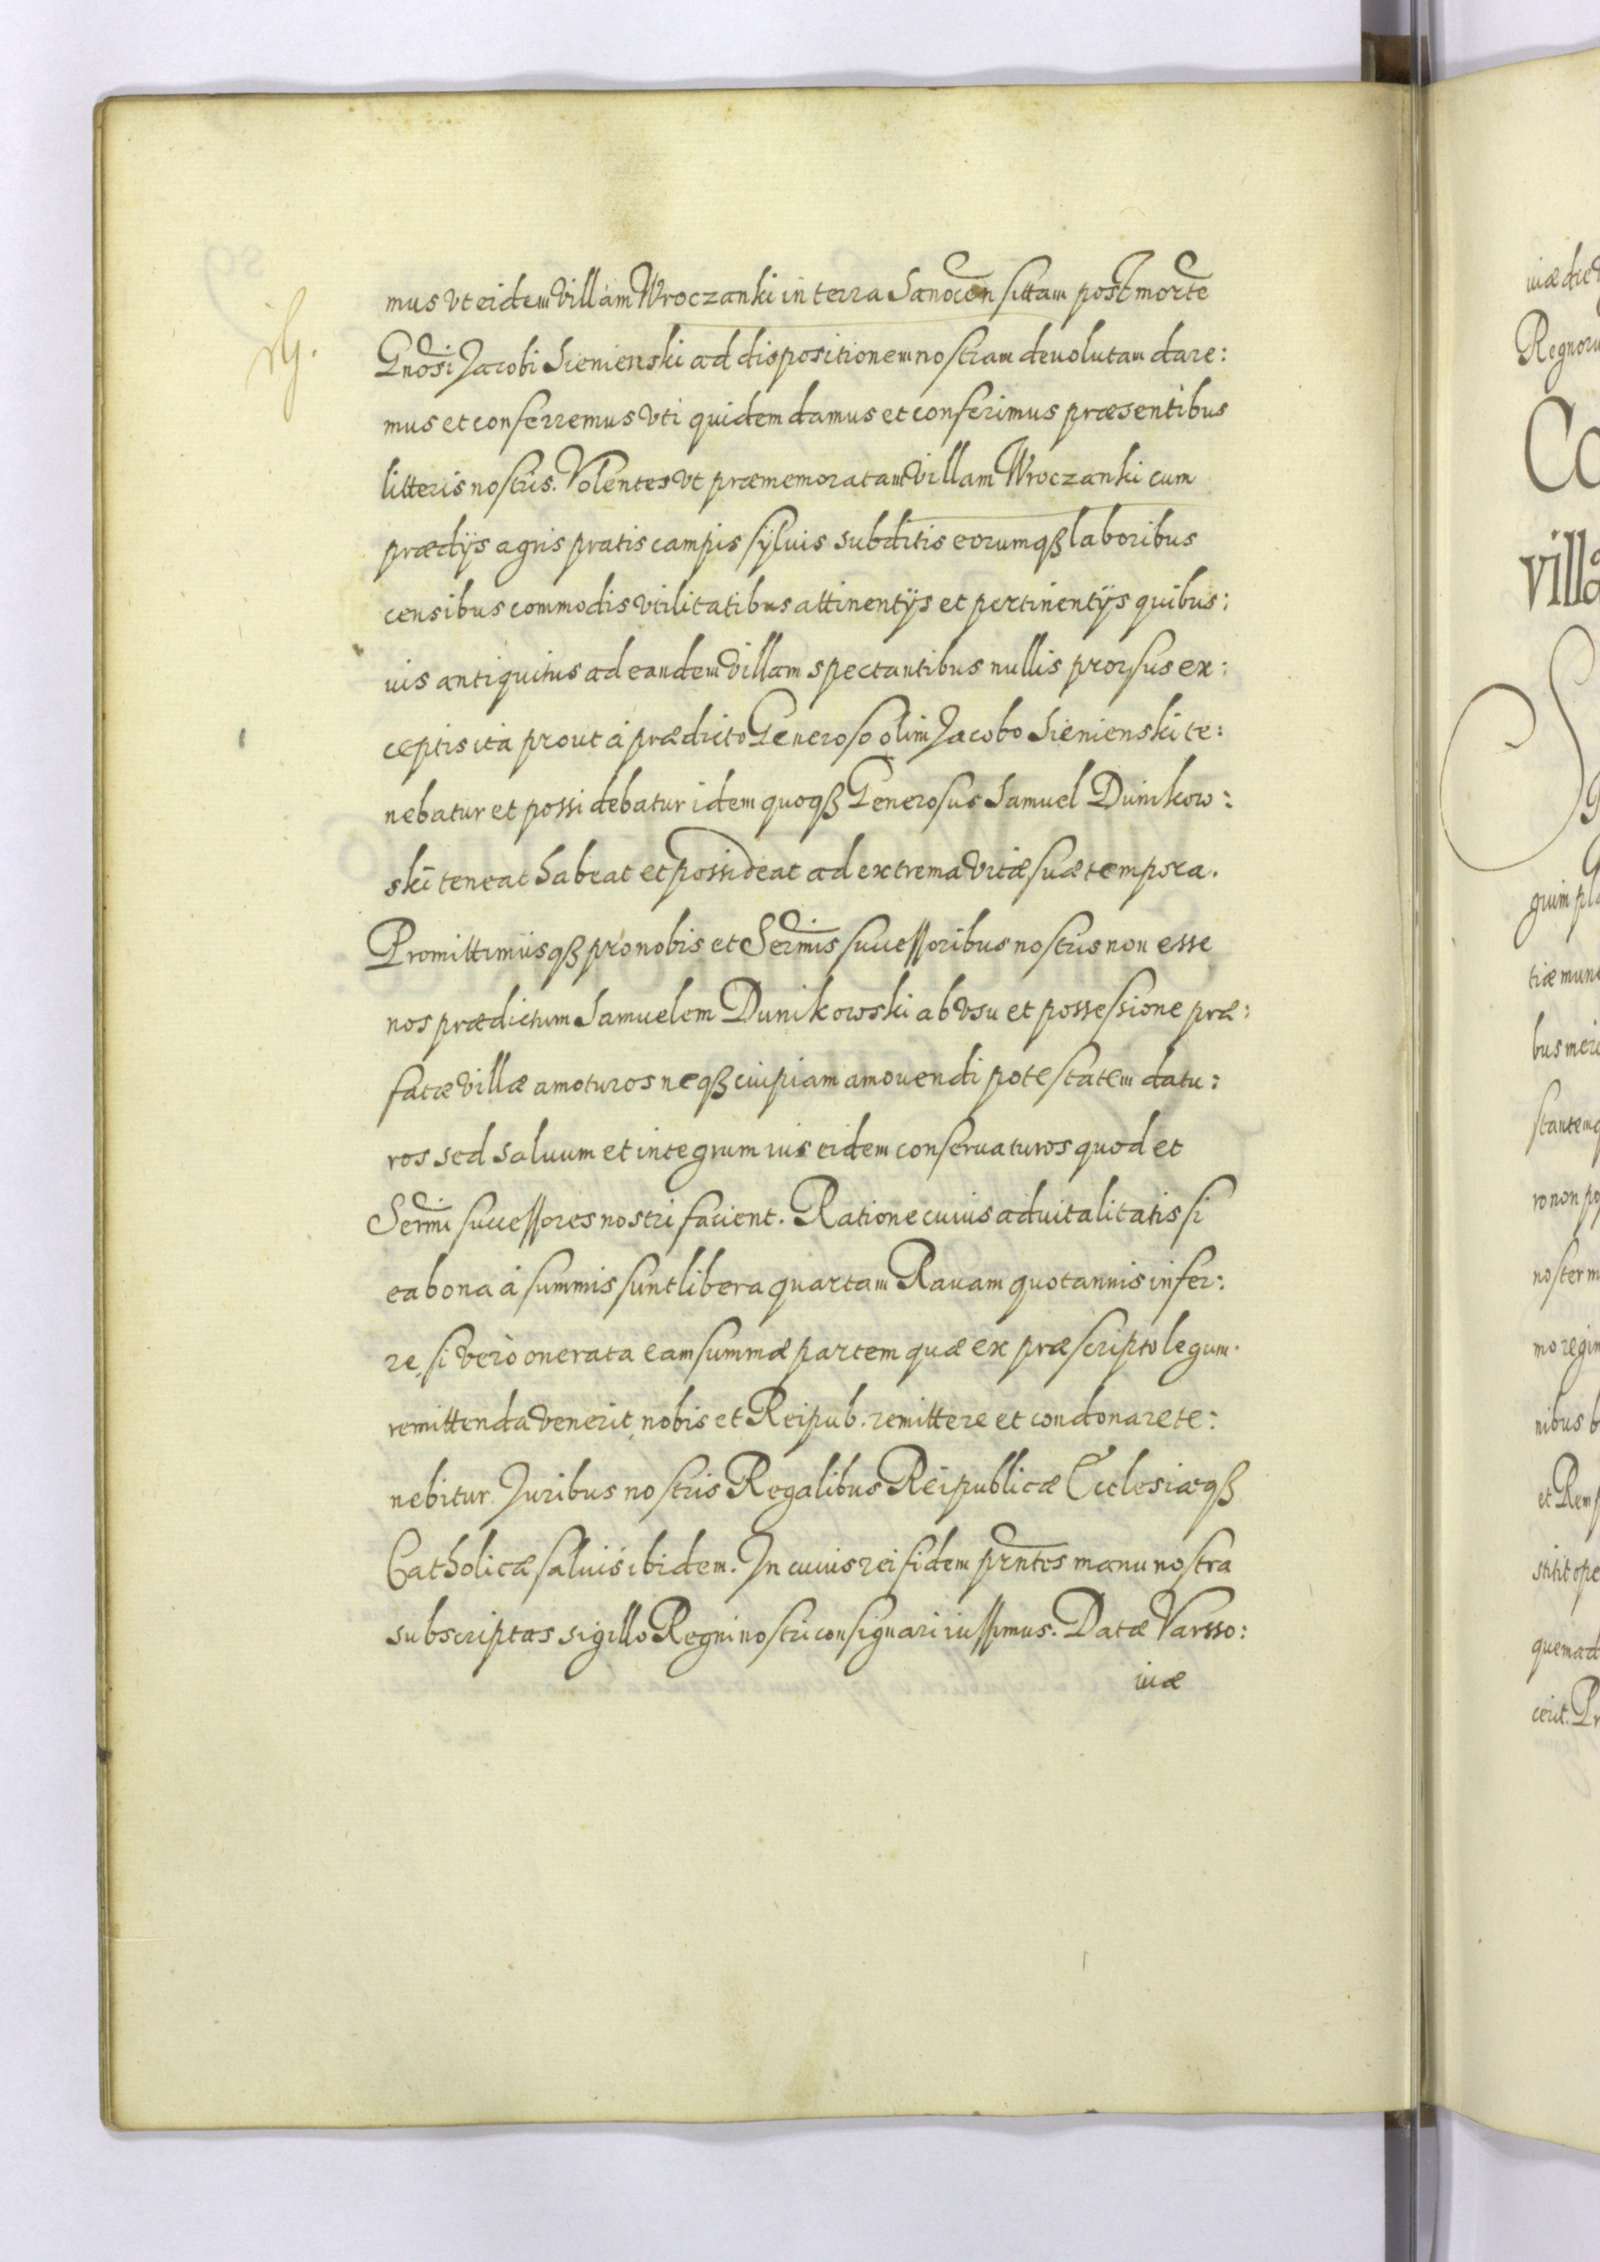 mus vt eidem villam Wroczanki in terra Sanocen sittam post morte
Gnosi Jacobi Sienienski ad dispositionem nostram deuolutam dare:
mus et conferremus vti quidem damus et conferimus præsentibus
litteris nostris. Volentes vt præmemoratam villam Wroczanki cum
prædijs agris pratis campis syluis subditis eorumqß laboribus
censibus commodis vtilitatibus attinentijs et pertinentijs quibus:
uis antiquitus ad eandem villam spectantibus nullis prorsus ex:
ceptis ita prout à prædicto Generoso olim Jacobo Sienienski te:
nebatur et possidebatur idem quoqß Generosus Samuel Dunikow:
ski teneat habeat et possideat ad extrema vitæ suæ tempora.
Promittimusqß pro nobis et Sermis successoribus nostris non esse
nos prædictum Samuelem Dunikowski ab vsu et possessione præ:
fatæ villæ amoturos neqß cuipiam amouendi potestatem datu:
ros sed saluum et integrum ius eidem conseruaturos quod et
Sermi successores nostri facient. Ratione cuius aduitalitatis si
ea bona à summis sunt libera quartam Rauam quotannis infer:
re, si verò onerata eam summæ partem quæ ex præscripto legum.
remittenda venerit, nobis et Reipub. remittere et condonare te:
nebitur. Juribus nostris Regalibus Reipublicæ Ecclesiæqß
Catholicæ saluis ibidem. In cuius rei fidem prntes manu nostra
subscriptas sigillo Regni nostri consignari iussimus. Datæ Varsso:
uiæ
uiæ die
Regnoru
Co
villa
guim pla
tiæ mun
bus meri
stantem
ro non po
noster m
mo regim
nibus b
et Rem
stitit ope
quemad
cerit. Pr